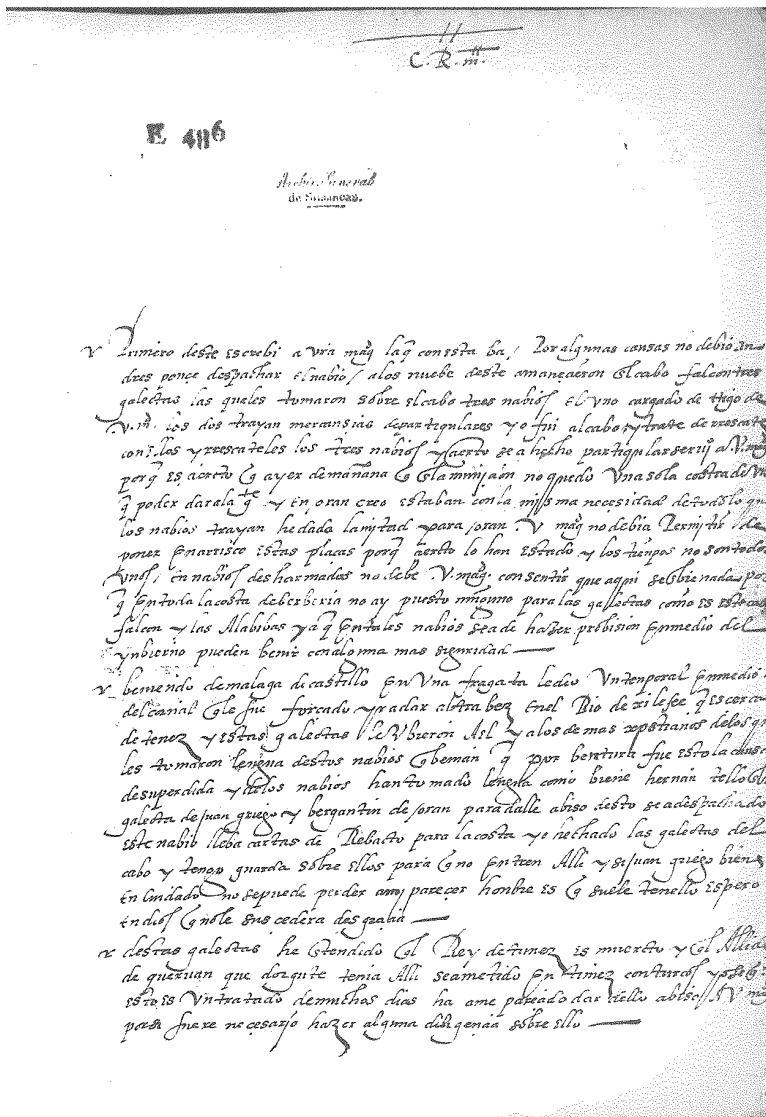 11
C. R. mt.
E 486
Archivo General
de Simancas.
Primero deste escrebi a vra mag la q con esta ba / Por algunas causas no debio an
dres ponce despachar el nabio / a los nuebe deste amanecieron en el cabo falcon tres
galeotas las quales tomaron sobre el cabo tres nabios El uno cargado de trigo de
V. m. los dos trayan mercansias departiqulares yo fui al cabo y trate de rrescate
con ellos y rrescateles los tres nabios y cierto se a hecho partiqular a V. mag
porq es cierto q ayer de mañana no quedo una sola costra de
q poder dar a la y En oran creo estaban con la missma necesidad de todo lo que
los nabios trayan he dado la mitad para oran V mag no debia Permitir de
poner En arrisco estas plaças porq cierto lo han estado y los tienpos no son todos
unos En nabios desharmados no debe V. mag. consentir que aqui se nada por
q En toda la costa de berberia no ay puesto ninguno para las galeotas como es este cabo
falcon y las Alabibas y a q En tales nabios se a de hazer probision En medio del
ynbierno pueden benir con alguna mas siguridad —
beniendo de malaga di castillo En Una fragata le dio Un tenporal En medio
del canal q le fue forcado yr a dar al trabez En el Rio de xilefee q es cerca
de tenez y estas galeotas le Ubieron Asi y a los demas xpstianos de los q
les tomaron lengua destos nabios q benian q por bentura fue esto la causa
de su perdida y de los nabios han tomado lengua como biene hernan tello En
galeota de juan griego y bergantin de oran para dalle abiso desto se a despachado
este nabio lleba cartas de Rebato para la costa yo hechado las galeotas del
cabo y tengo guarda sobre ellos para q no En tren Alli y si juan griego biene
En cuidado no se puede perder a mj parecer honbre es q suele tenello espero
En dios q no le sus cedera desgracia —
destas galeotas he Entendido q El Rey de tunez es muerto y q El
de queruan que dorgute tenia Alli se a metido En tunez con turcos y
esto es Un tratado de muchos dias ha a me parecido dar dello abiso A V mag
por si fuere necesario hazer alguna diligencia sobre ello —